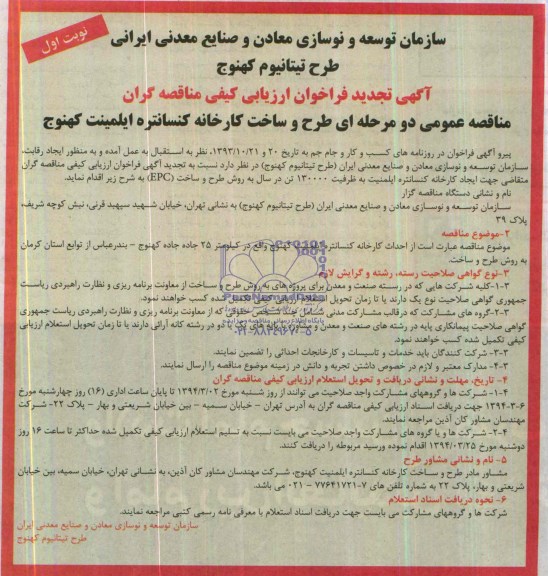 نوبت اول
سازمان توسعه و نوسازی معادن و صنایع معدنی ایرانی
طرح تیتانیوم کهنوج
آگهی تجدید فراخوان ارزیابی کیفی مناقصه گران
مناقصه عمومی دو مرحله ای طرح و ساخت کارخانه کنسانتره ایلمنیت کهنوج
پیرو آگهی فراخوان در روزنامه های کسب و کار و جام جم به تاریخ ۲۰ و ۱۳۹۳/۱۰/۲۱، نظر به استقبال به عمل آمده و به منظور ایجاد رقابت،
سازمان توسعه و نوسازی معادن و صنایع معدنی ایران (طرح تیتانیوم کهنوج) در نظر دارد نسبت به تجدید آگهی فراخوان ارزیابی کیفی مناقصه گران
متقاضی جهت ایجاد کارخانه کنسانتره ایلمنیت به ظرفیت ۱۳۰۰۰۰ تن در سال به روش طرح و ساخت (EPC) به شرح زیر اقدام نماید.
نام و نشانی دستگاه مناقصه گزار
سازمان توسعه و نوسازی معادن و صنایع معدنی ایران (طرح تیتانیوم کهنوج) به نشانی تهران، خیابان شهید سپهبد قرنی، نبش کوچه شریف،
پلاک ۳۹
۲-موضوع مناقصه
موضوع مناقصه عبارت است از احداث کارخانه کنسانتره کهنوج واقع در کیلومتر ۲۵ جاده جاده کهنوج - بندرعباس از توابع استان کرمان
به روش طرح و ساخت.
۳-نوع گواهی صلاحیت رسته، رشته و گرایش لازم
۳-۱-کلیه شرکت هایی که در رسته صنعت و معدن برای پروژه های به روش طرح و ساخت از معاونت برنامه ریزی و نظارت راهبردی ریاست
جمهوری گواهی صلاحیت نوع یک دارند یا تا زمان تحویل استعلام ارزیابی کیفی تکمیل شده کسب خواهند نمود.
۳-۲-گروه های مشارکت که در قالب مشارکت مدنی شامل چند شخص حقوقی که از معاونت برنامه ریزی و نظارت راهبردی ریاست جمهوری
گواهی صلاحیت پیمانکاری پایه در رشته های صنعت و معدن و مشاوره پایه های یک یا دو در رشته کانه آرائی دارند یا تا زمان تحویل استعلام ارزیابی
کیفی تکمیل شده کسب خواهند نمود.
۳-۳- شرکت کنندگان باید خدمات و تاسیسات و کارخانجات احداثی را تضمین نمایند.
۳-۴- مدارک معتبر و لازم در خصوص داشتن تجربه و دانش در زمینه موضوع مناقصه را ارسال نمایند.
۴- تاریخ، مهلت و نشانی دریافت و تحویل استعلام ارزیابی کیفی مناقصه گران
۴-۱- شرکت ها و گروههای مشارکت واجد صلاحیت می توانند از روز شنبه مورخ ۱۳۹۴/۳/۰۲ تا پایان ساعت اداری (۱۶) روز چهارشنبه مورخ
۱۳۹۴-۳-۶ جهت دریافت اسناد ارزیابی کیفی مناقصه گران به آدرس تهران - خیابان سمیه - بین خیابان شریعتی و بهار - پلاک ۲۲- شرکت
مهندسان مشاور کان آذین مراجعه نمایند.
۴-۲- شرکت ها و یا گروه های مشارکت واجد صلاحیت می بایست نسبت به تسلیم استعلام ارزیابی کیفی تکمیل شده حداکثر تا ساعت ۱۶ روز
دوشنبه مورخ ۱۳۹۴/۰۳/۲۵ اقدام نموده ورسید مربوطه را دریافت کنند.
۵- نام و نشانی مشاور طرح
مشاور مادر طرح و ساخت کارخانه کنسانتره ایلمنیت کهنوج، شرکت مهندسان مشاور کان آذین، به نشانی تهران، خیابان سمیه، بین خیابان
شریعتی و بهار، پلاک ۲۲ به شماره تلفن های ۷-۷۷۶۴۱۷۲۱ - ۰۲۱ می باشد.
۶- نحوه دریافت اسناد استعلام
شرکت ها و گروههای مشارکت می بایست جهت دریافت اسناد استعلام با معرفی نامه رسمی کتبی مراجعه نمایند.
سازمان توسعه و نوسازی معادن و صنایع معدنی ایران
طرح تیتانیوم کهنوج